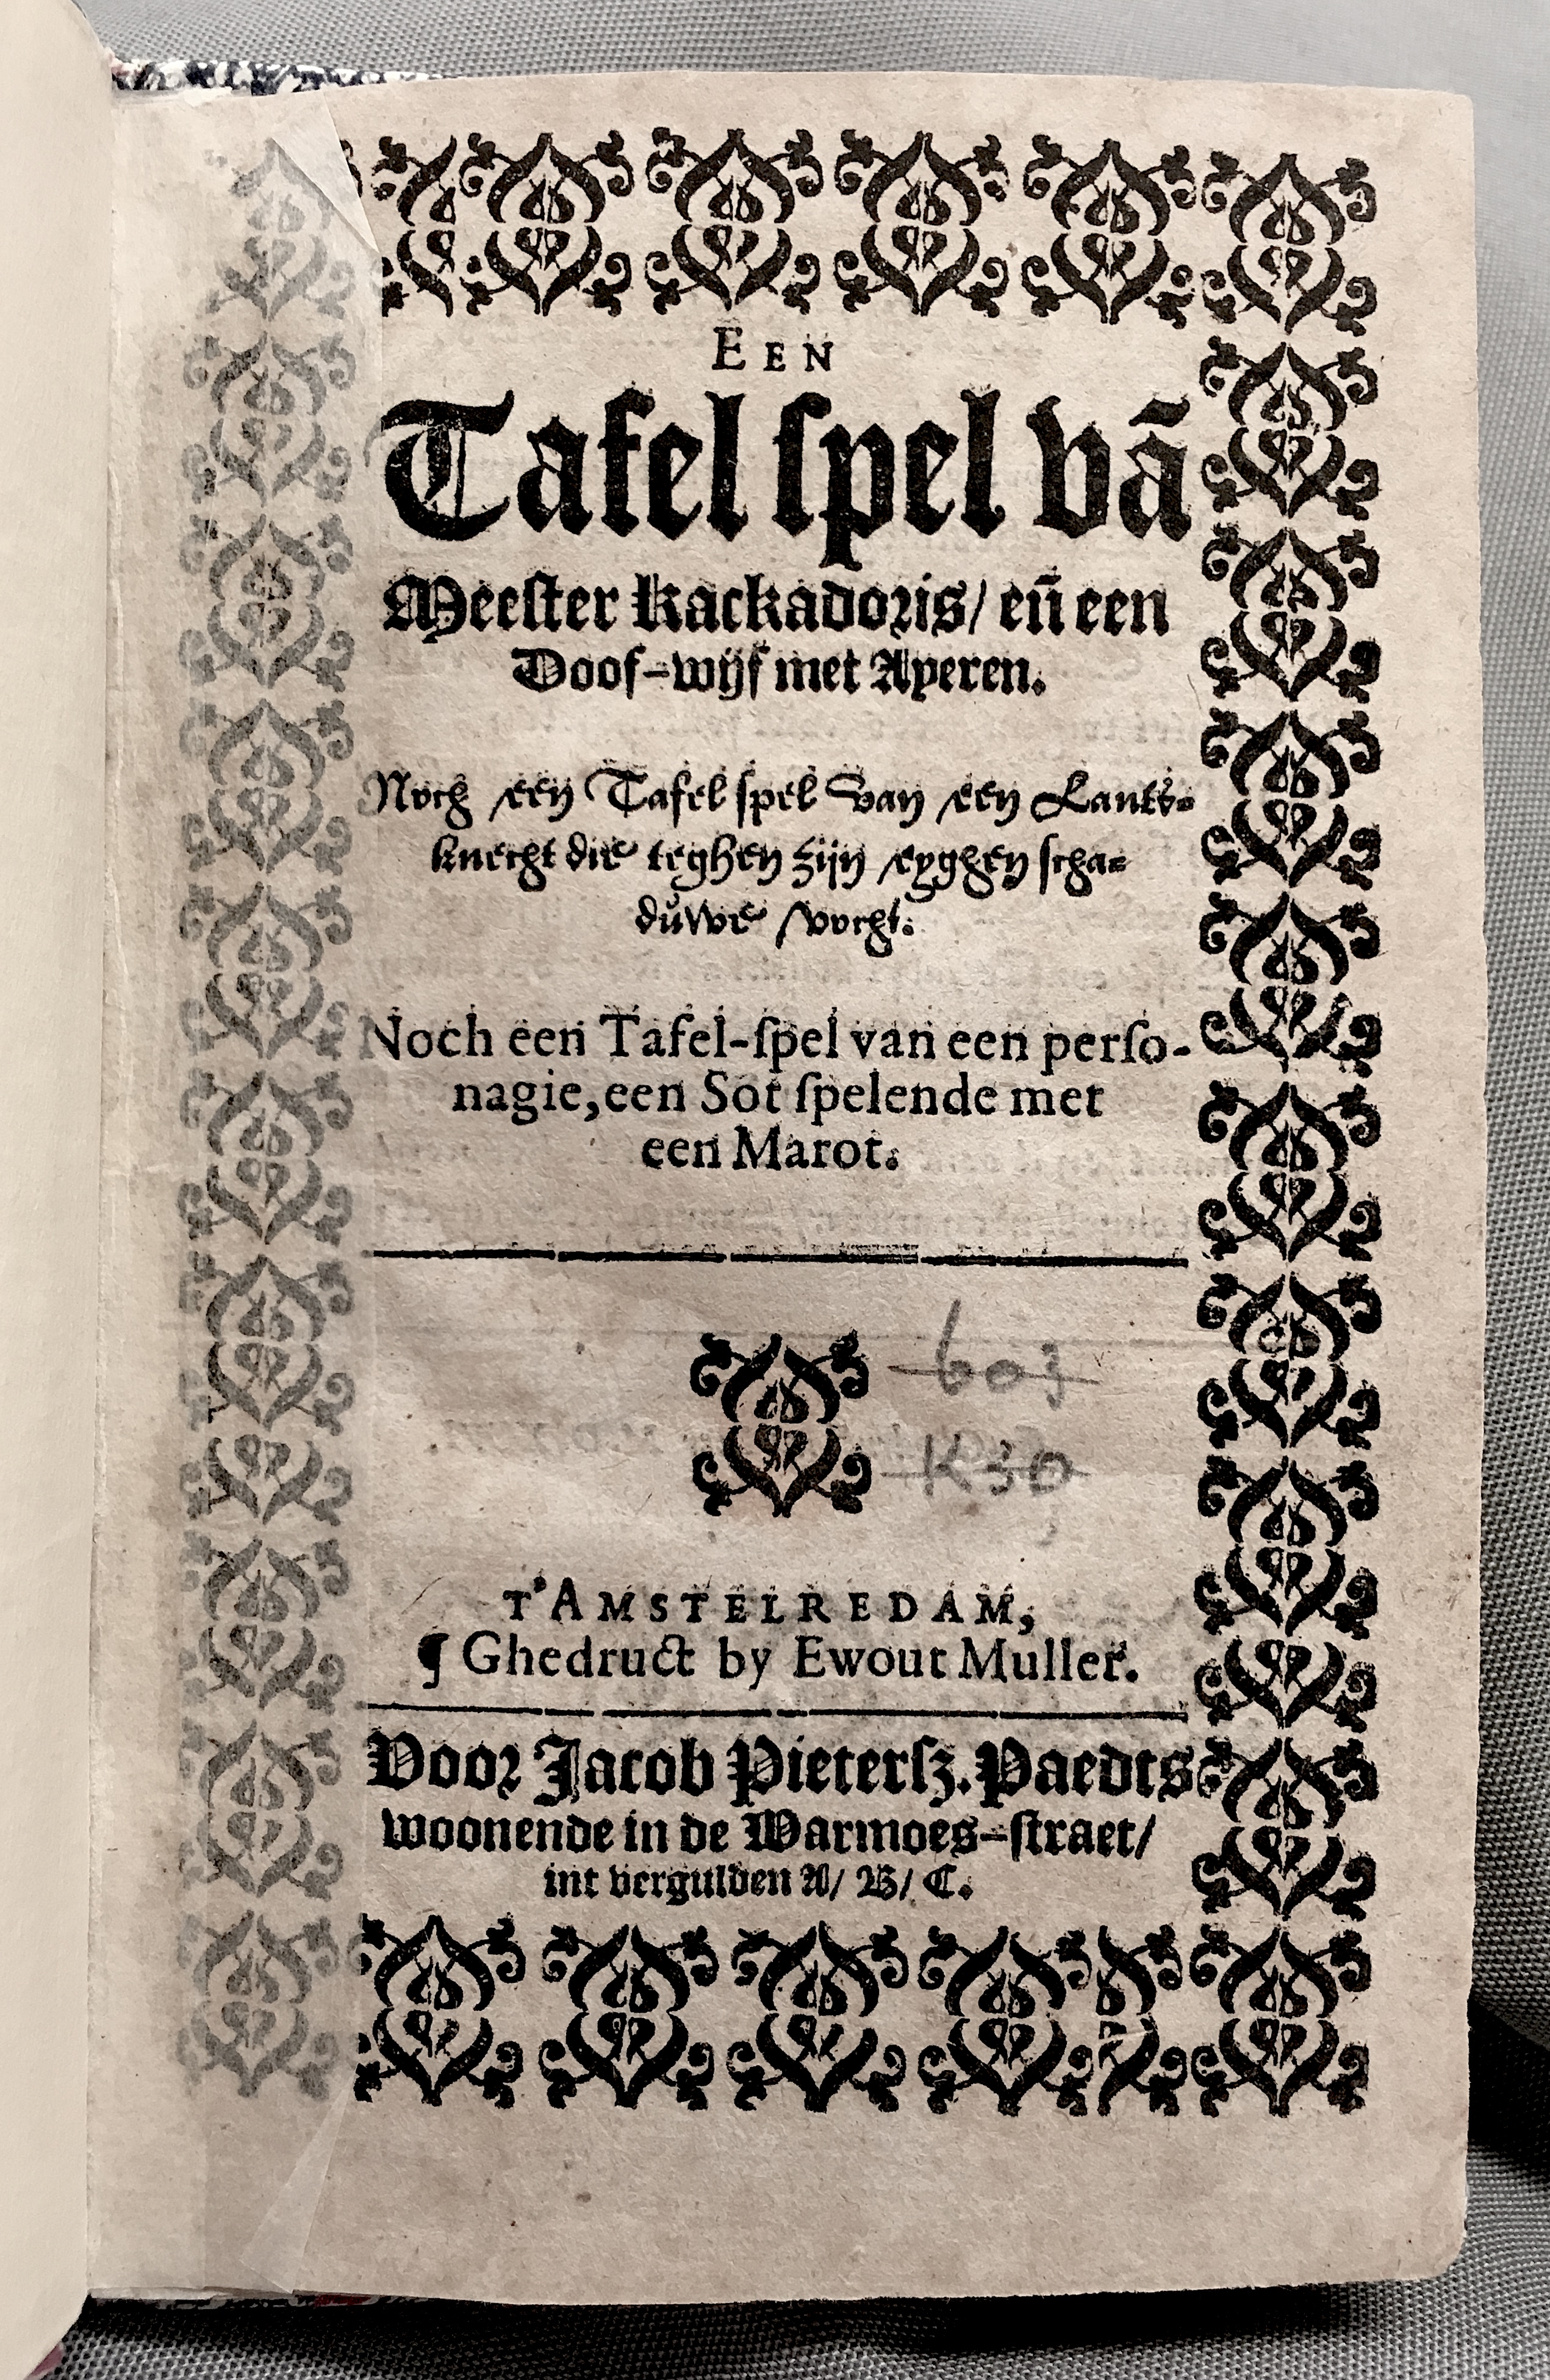 EEN
Tafel spel vā
Meester Kackadoris/ en̄ een
Doof-wijf met Ayeren.
Noch een Tafel spel van een Lants-
knecht die teghen zijn eyghen scha-
duwe vocht.
Noch een Tafel-ſpel van een perſo-
nagie, een Sot ſpelende met
een Marot.
603
K30
T'AMSTELREDAM,
¶ Ghedruct by Ewout Muller.
Voor Jacob Pieterſz. Paedts
woonende in de Warmoes-ſtraet/
int vergulden A/ B/ C.